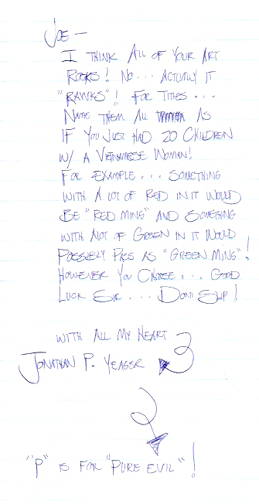 Joe —
I think all of your art
rocks! No... actually it
"rawks"! For titles...
Name them all as
if you just had 20 children
w/ a Vietnamese woman!
For example... something
with a lot of red in it would
be "Red Ming" and something
with alot of green in it would
possibly pass as "Green Ming"!
However you chose... good
luck sir... Dont slip!
with all my heart
Jonathan P. Yeager
"P" is for "Pure Evil"!